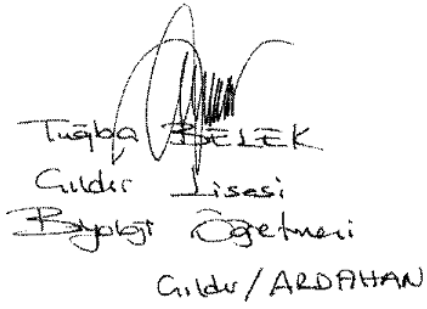 Tuğba BELEK
Çıldır Lisesi
Biyoloji Öğretmeni
Çıldır/ARDAHAN